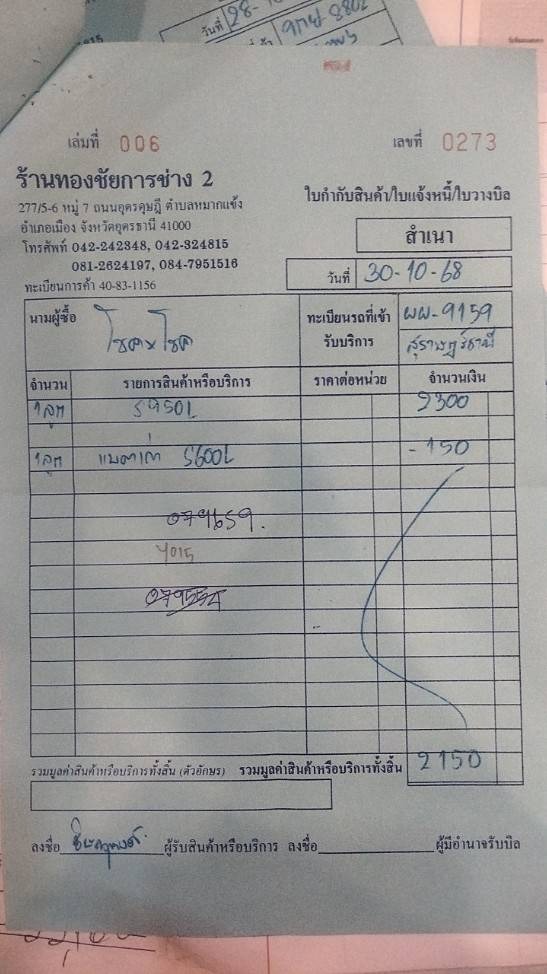 วันที่ 28-
เล่มที่ 006
เลขที่ 0273
ร้านทองชัยการช่าง 2
277/5-6 หมู่ 7 ถนนอุดรดุษฎี ตำบลหมากแข้ง
อำเภอเมือง จังหวัดอุดรธานี 41000
โทรศัพท์ 042-242348, 042-324815
081-2624197, 084-7951516
ทะเบียนการค้า 40-83-1156
ใบกำกับสินค้า/ใบแจ้งหนี้/ใบวางบิล
สำเนา
วันที่ 30-10-68
นามผู้ซื้อ โชคโชค
ทะเบียนรถที่เข้ารับบริการ ผผ-9159
สุราษฎร์ธานี
จำนวน รายการสินค้าหรือบริการ ราคาต่อหน่วย จำนวนเงิน
1ลูก S950L 2300
1ลูก แบตเก่า S600L -150
079659.
4015
รวมมูลค่าสินค้าหรือบริการทั้งสิ้น (ตัวอักษร) รวมมูลค่าสินค้าหรือบริการทั้งสิ้น 2150
ลงชื่อ ผู้รับสินค้าหรือบริการ ลงชื่อ ผู้มีอำนาจรับบิล